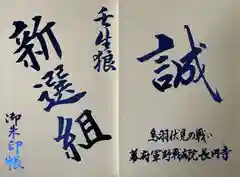 壬生狼
新選組
御朱印帳
誠
鳥羽伏見の戦い
幕府軍野戦病院・長円寺